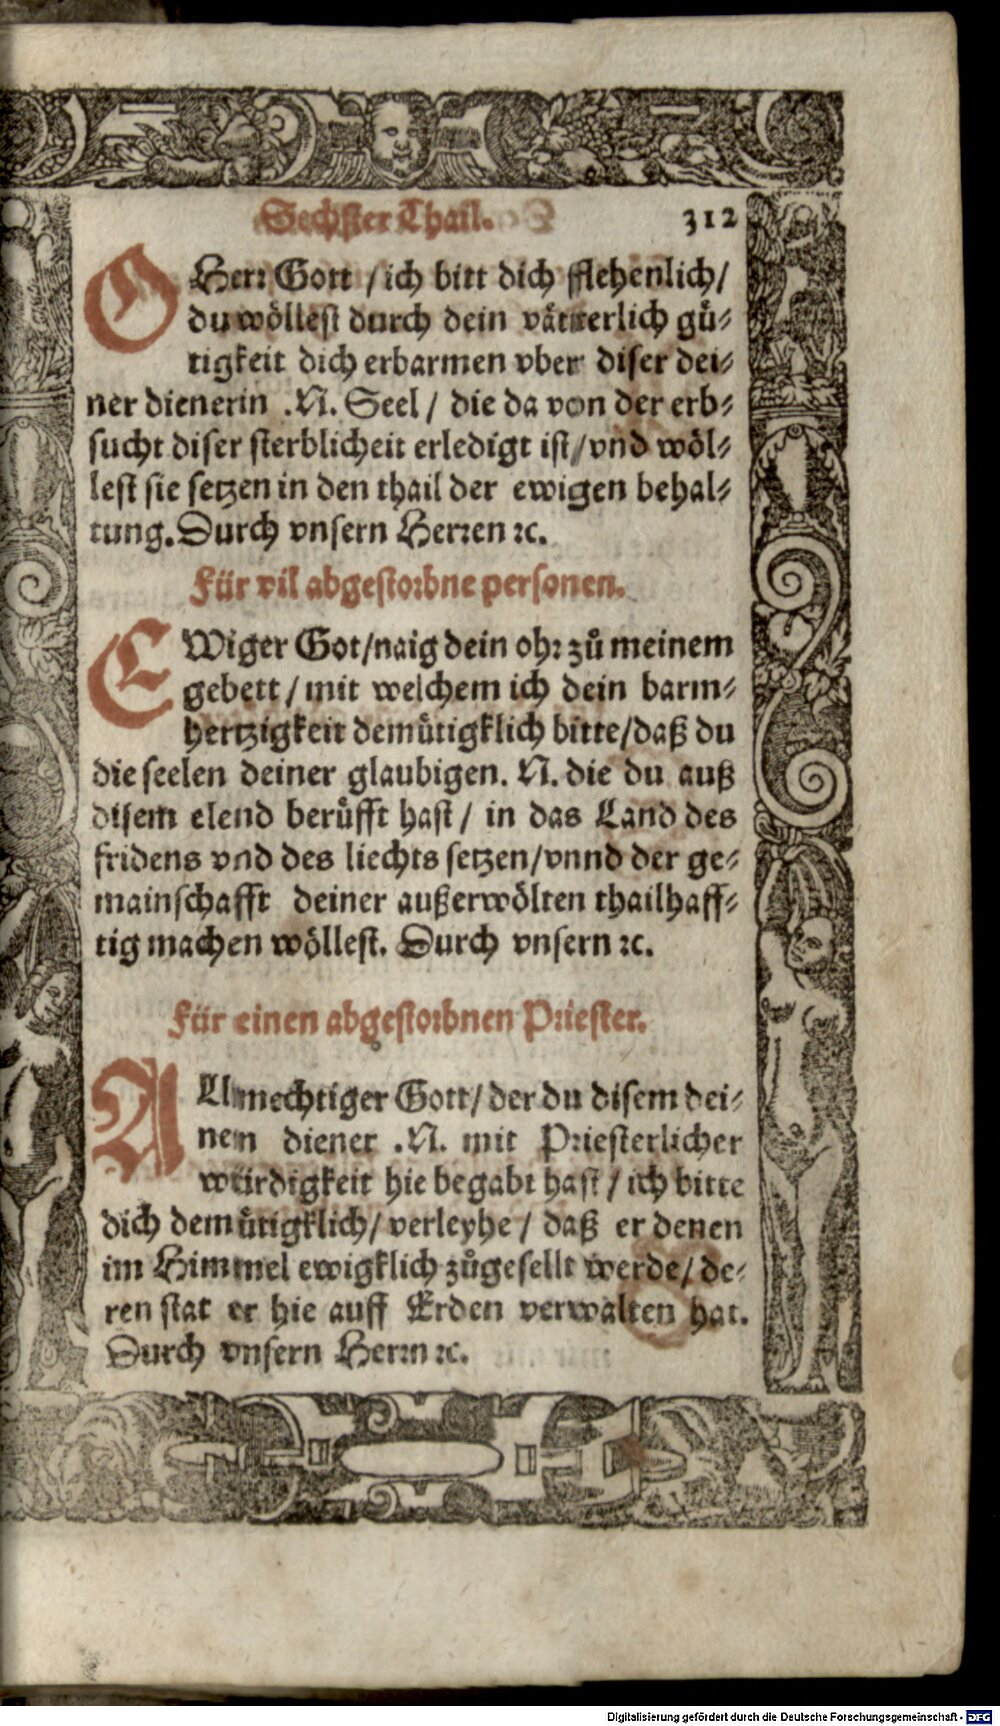 Sechster Thail. 312
O Herr Gott / ich bitt dich flehenlich/
du wöllest durch dein vätterlich gü-
tigkeit dich erbarmen vber diser dei-
ner dienerin .N. Seel / die da von der erb-
sucht diser sterblicheit erledigt ist/vnd wöl-
lest sie setzen in den thail der ewigen behal-
tung. Durch vnsern Herren ꝛc.
Für vil abgestorbne personen.
EWiger Got/naig dein ohr zů meinem
gebett / mit welchem ich dein barm-
hertzigkeit demütigklich bitte/daß du
die seelen deiner glaubigen. N. die du auß
disem elend berüfft hast / in das Land des
fridens vnd des liechts setzen/vnnd der ge-
mainschafft deiner außerwölten thailhaff-
tig machen wöllest. Durch vnsern ꝛc.
Für einen abgestorbnen Priester.
ALmechtiger Gott/ der du disem dei-
nem diener .N. mit Priesterlicher
würdigkeit hie begabt hast / ich bitte
dich demütigklich/ verleyhe / daß er denen
im Himmel ewigklich zůgesellt werde/ de-
ren stat er hie auff Erden verwalten hat.
Durch vnsern Herrn ꝛc.
Digitalisierung gefördert durch die Deutsche Forschungsgemeinschaft - DFG